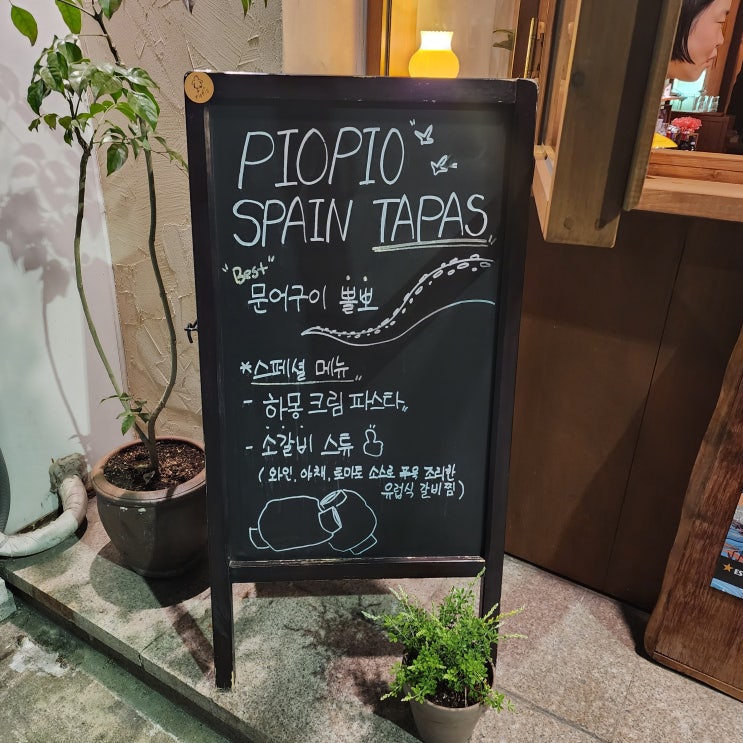 PIOPIO
SPAIN TAPAS
"Best"
문어구이 뽈뽀
*스페셜 메뉴
- 하몽 크림 파스타
- 소갈비 스튜
(와인, 야채, 토마토 소스로 푸욱 조리한
유럽식 갈비찜)